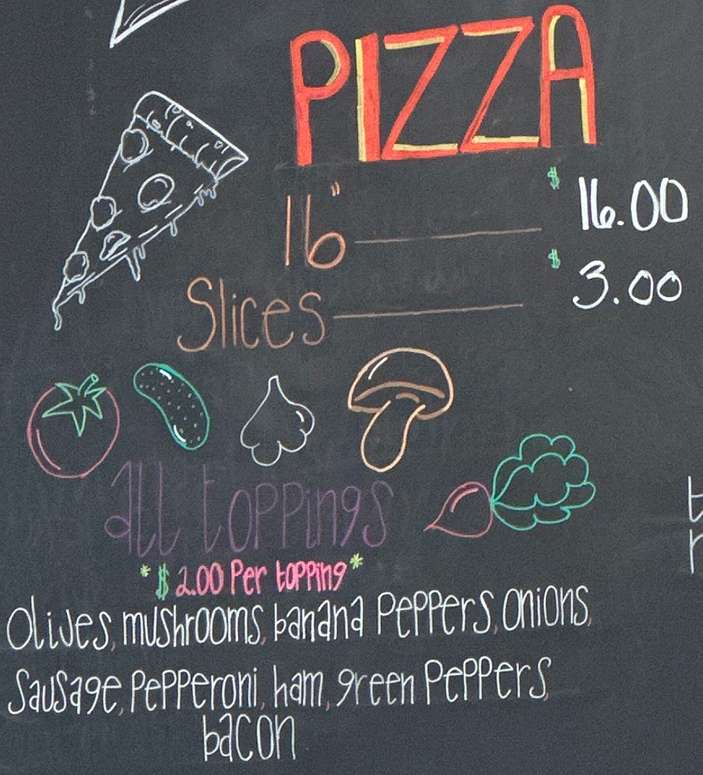 PIZZA
16" $ 16.00
Slices $ 3.00
all toppings
*$ 2.00 Per topping*
Olives, mushrooms, banana Peppers, onions,
Sausage, Pepperoni, ham, green Peppers,
bacon